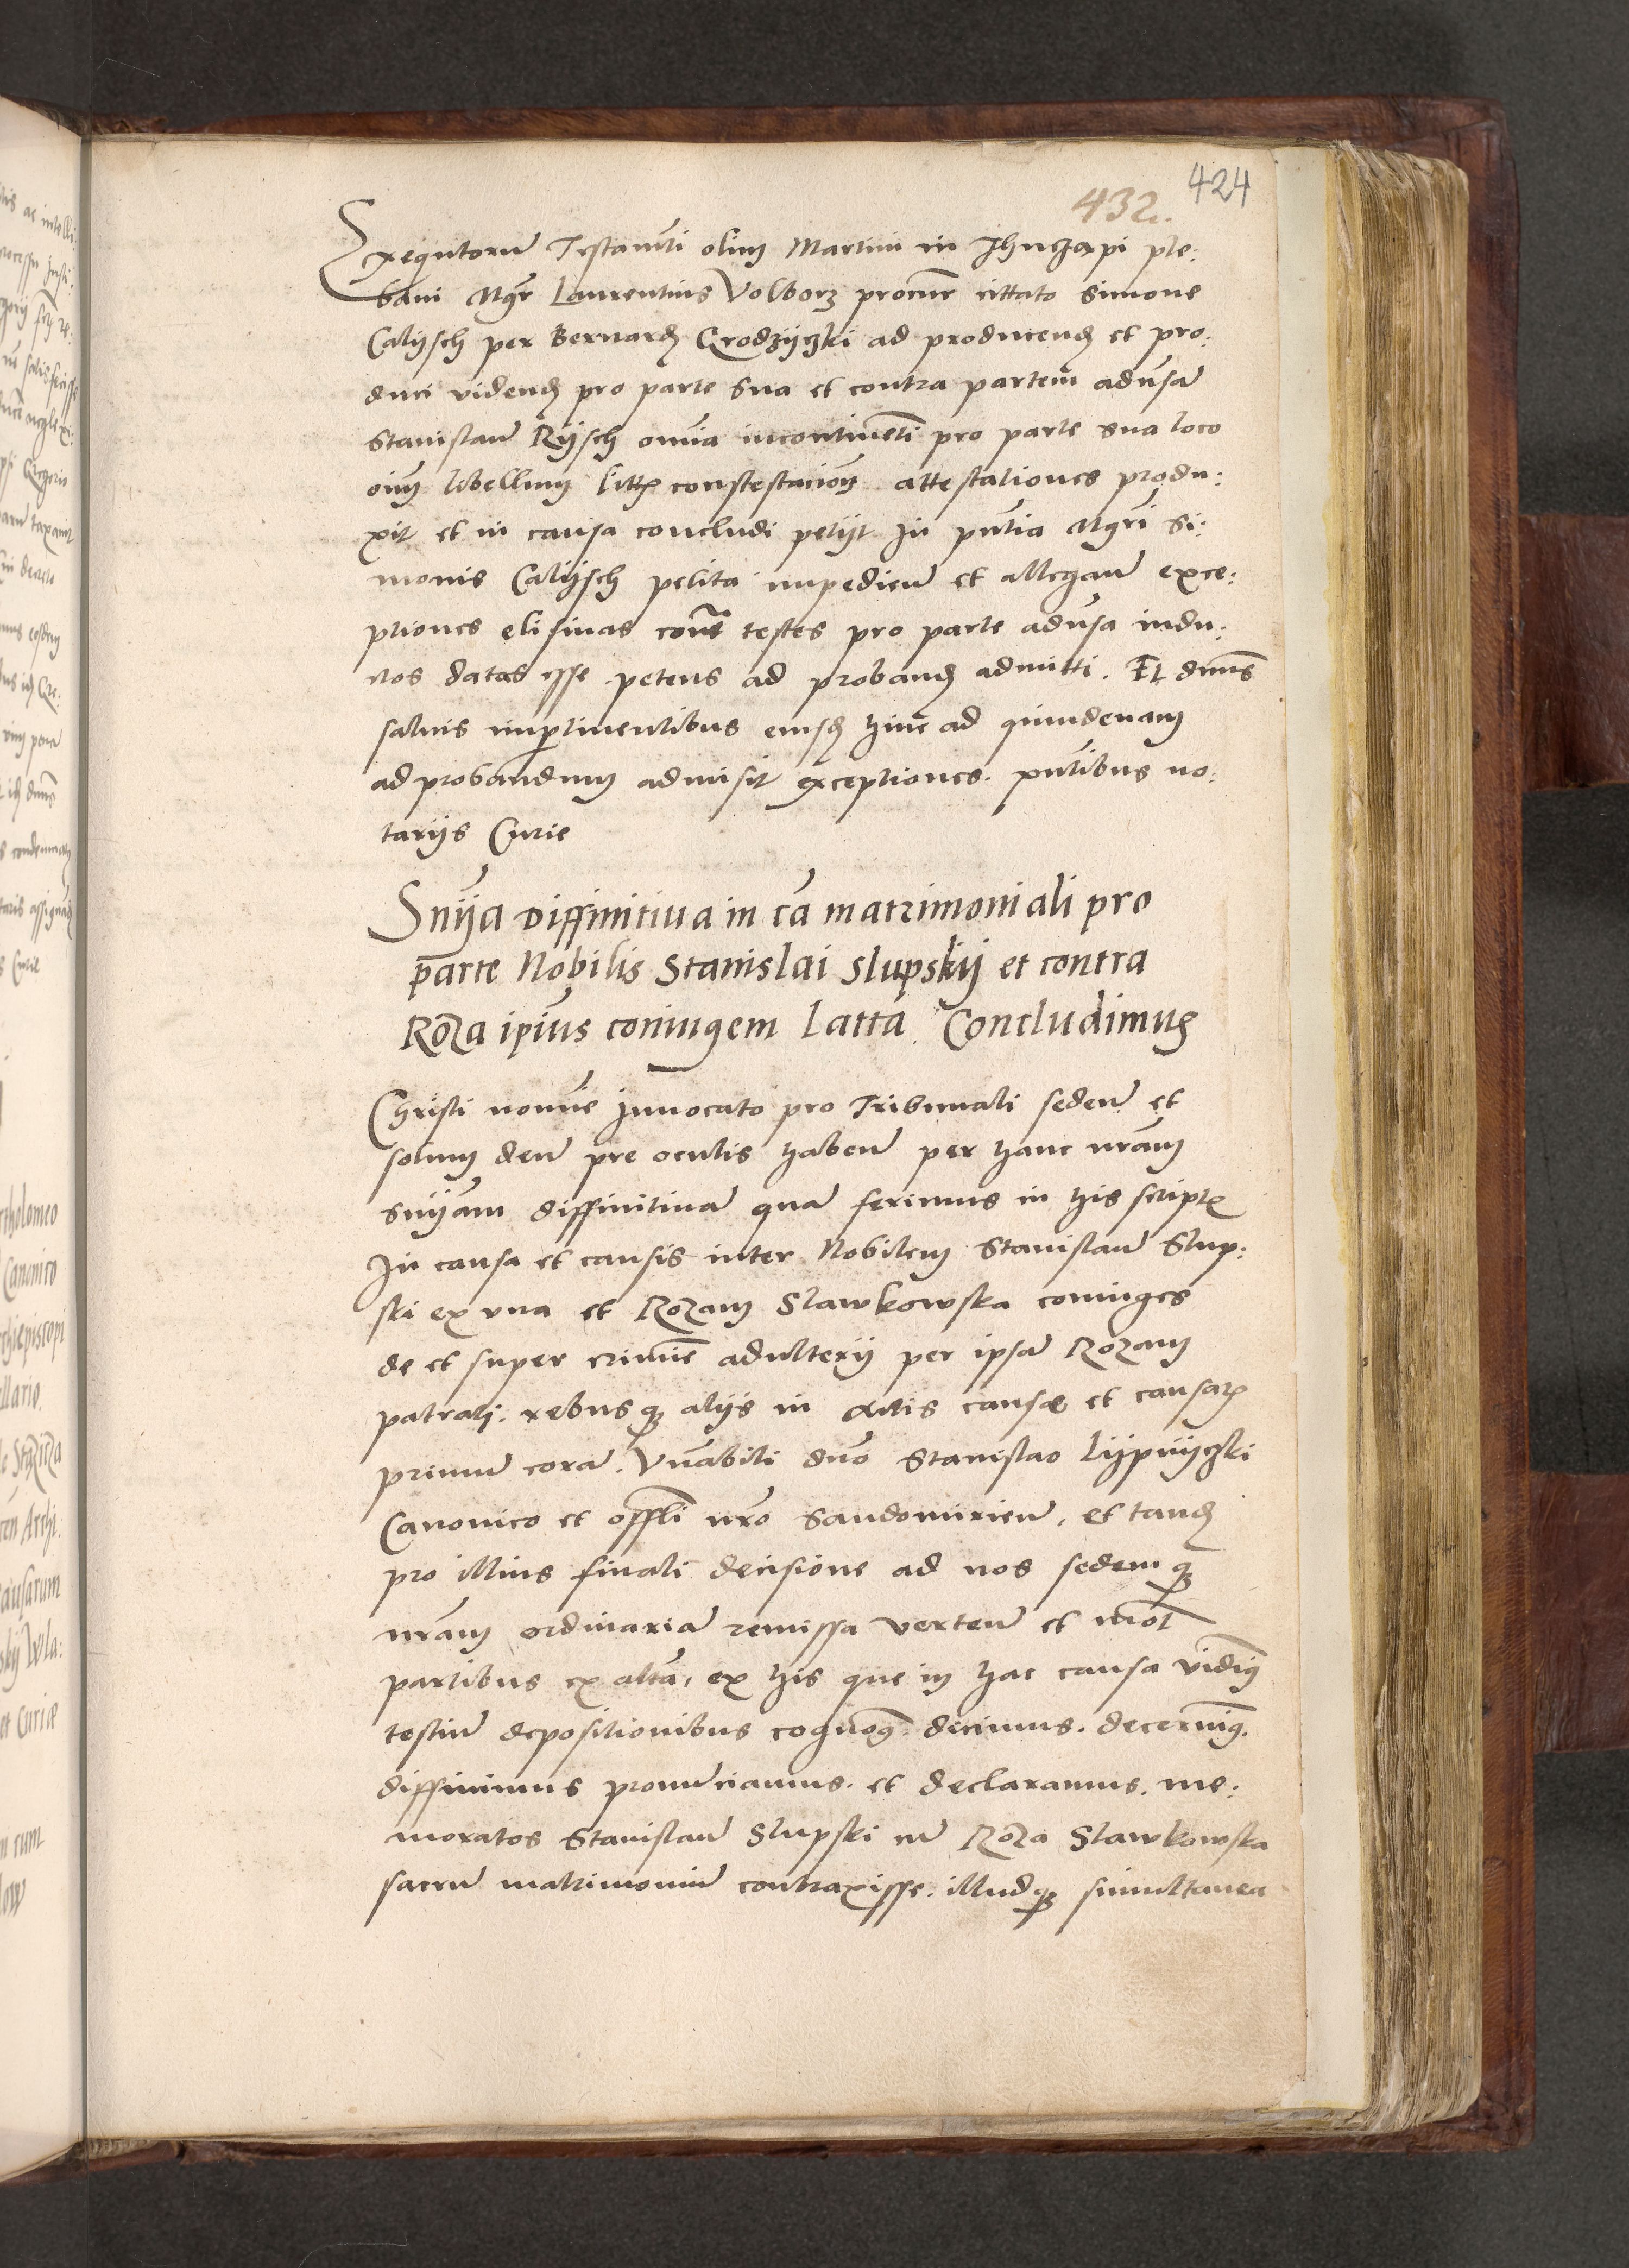 424
432.
Exequtorum Testamẽti olim Martini in plebani
bani Mgr Laurentius Volborz procur cittato Simone
Calijsch per Bernard Grodzÿczki ad producend et pro:
duci vidend pro parte sua et contra partem adũsã
Stanislaũ Rÿsch omnia incontinẽti pro parte sua loco
oim libellum litt constestacionẽ attestationes produ:
xit et in causa concludi petijt In pñtia Mgri Si:
monis Calijsch petita impedieñ et allegañ exce:
ptiones elisiuas cont testes pro parte adũsa indu:
ctos datas esse petens ad proband admitti. Et dñus
saluis impertinentibus eiusd hinc ad quindenam
ad probandum admisit exceptiones. pñtibus no:
tarijs Curie
Snÿa Diffinitiua in cã matrimoniali pro
parte Nobilis Stanislai Slupskij et contra
Roza ipĩus coniugem Lattã. Concludimus
Christi nomĩe Inuocato pro Tribunali sedeñ et
solum deũ pre oculis habeñ per hanc nrãm
snÿam diffinitiuã quã ferimus in his script
In causa et causis inter Nobilem Stanislaũ Slup:
ski ex vna et Rozam Slawkowska coniuges
de et super crimĩe adulterij per ipsã Rozam
patratj. rebusq alijs in Actis causæ et causar
primũ corã. Vñabili dño Stanislao Lÿpnÿczki
Canonico et offli nrõ Sandomirieñ. et tand
pro illius finali decisione ad nos sedemq
nrãm ordinariã remissa verteñ et mot
partibus ex altã, ex his que in hac causa vidimq
testiũ depositionibus cognoq dicimus. decernimq.
diffinimus pronũciamus. et declaramus. me:
moratos Stanislaũ Slupski cũ Roza Slawkowska
sacrũ matrimoniũ contraxisse. illudq simultanea